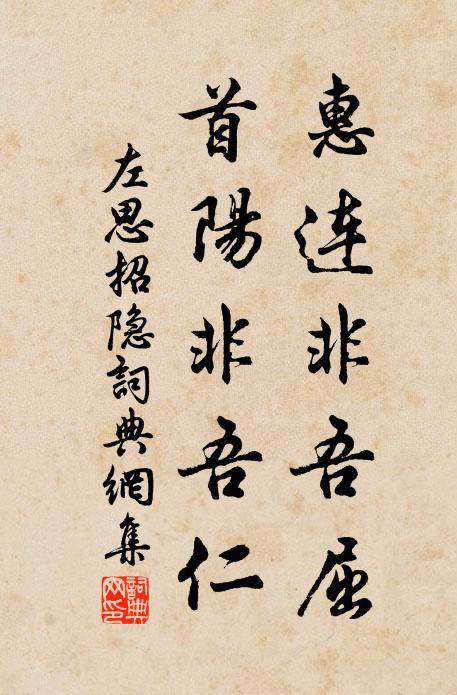 惠连非吾屈
首陽非吾仁
左思招隐詞典網集
詞典网印